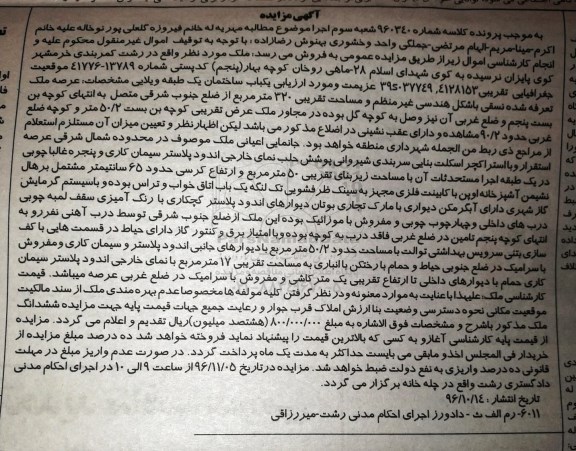 آگهی مزایده
به موجب پرونده کلاسه شماره ۹۶۰۳۴۰ شعبه سوم اجرا موضوع مطالبه مهریه له خانم فیروزه کلعلی پور نوخاله علیه خانم
اکرم-مینا-مریم-الهام مرتضی-جملگی واحد وخشوری بینوش رضازاده ، با توجه به توقیف اموال غیرمنقول محکوم علیه و
انجام کارشناسی اموال زیر از طریق مزایده عمومی به فروش می رسد، ملک مورد نظر واقع در رشت کمربندی خرمشهر
کوی پایزان نرسیده به کوی شهدای اسلام ۲۸-ماهی روخان کوچه بهار(پنجم) کدپستی شماره ۱۳۷۸۹-۴۱۷۷۶ موقعیت
جغرافیایی تقریبی ۴۱۲۸۱۵۲، ۳۹s۰۳۷۷۴۹ عزیمت ومورد ارزیابی یکباب ساختمان یک طبقه ویلایی مشخصات: عرصه ملک
تعرفه شده نسقی باشکل هندسی غیرمنظم و مساحت تقریبی ۳۲۰ مترمربع از ضلع جنوب شرقی متصل به انتهای کوچه بن
بست پنجم و ضلع غربی آن نیز وصل به کوچه گل بوده در مجاور ملک عرض تقریبی کوچه بن بست ۵۰/۲ متر و کوچه ضلع
غربی حدود ۹۰/۲ مشاهده و دارای عقب نشینی در اضلاع مذکور می باشد لیکن اظهارنظر و تعیین میزان آن مستلزم استعلام
از مراجع ذی ربط من الجمله شهرداری منطقه خواهد بود. جانمایی اعیانی ملک موصوف در محدوده شمال شرقی عرصه
استقرار وبااستراکچر اسکلت بنایی سربندی شیروانی پوشش حلب نمای خارجی اندود پلاستر سیمان کاری و پنجره غالبا چوبی
در یک طبقه اجرا مستحدثات آن با مساحت زیربنای تقریبی ۵۰ مترمربع و ارتفاع کرسی حدود ۶۵ سانتیمتر مشتمل بر هال
نشیمن آشپزخانه اوپن با کابینت فلزی مجهز به سینک ظرفشویی تک لنگه یک باب اتاق خواب و تراس بوده و باسیستم گرمایش
گاز شهری دارای آبگرمکن دیواری با مارک تجاری بوتان دیوارهای اندود پلاستر گچکاری با رنگ آمیزی سقف لمبه چوبی
درب های داخلی وچهارچوب چوبی و مفروش با موزائیک بوده این ملک از ضلع جنوب شرقی توسط درب آهنی نفررو به
انتهای کوچه پنجم تامین در ضلع غربی فاقد درب به کوچه بوده و با امتیاز برق و کنتور گاز دارای حیاط در قسمت هایی با کف
سازی بتنی سرویس بهداشتی توالت با مساحت حدود ۵۰/۲ مترمربع با دیوارهای جانبی اندود پلاستر و سیمان کاری ومفروش
با سرامیک در ضلع جنوبی حیاط و حمام با رختکن با انباری به مساحت تقریبی ۱۷ مترمربع با نمای خارجی اندود پلاستر سیمان
کاری حمام با دیوارهای داخلی تا ارتفاع تقریبی یک متر کاشی و مفروش با سرامیک در ضلع غربی عرصه میباشد. قیمت
کارشناسی ملک: علیهذا با عنایت به موارد معنونه ودر نظر گرفتن کلیه مولفه ها مخصوصا عدم بهره مندی ملک از سند مالکیت
موقعیت مکانی نحوه دسترسی وضعیت بنا ارزش املاک قرب جوار و رعایت جمیع جهات قیمت پایه جهت مزایده ششدانگ
ملک مذکور باشرح و مشخصات فوق الاشاره به مبلغ ۸۰۰/۰۰۰/۰۰۰ (هشتصد میلیون)ریال تقدیم و اعلام می گردد. مزایده
از قیمت پایه کارشناسی آغاز و به کسی که بالاترین قیمت را پیشنهاد نماید فروخته خواهد شد ده درصد مبلغ مزایده از
خریدار فی المجلس اخذو مابقی می بایست حداکثر به مدت یک ماه پرداخت گردد. در صورت عدم واریز مبلغ در مهلت
قانونی ده درصد واریزی به نفع دولت ضبط خواهد شد. مزایده درتاریخ ۹۶/۱۱/۰۵ از ساعت ۹ الی ۱۰ در اجرای احکام مدنی
دادگستری رشت واقع در چله خانه برگزار می گردد.
تاریخ انتشار : ۹۶/۱۰/۱۴
۶۰۱۱- رم الف ث - دادورز اجرای احکام مدنی رشت-میررزاقی